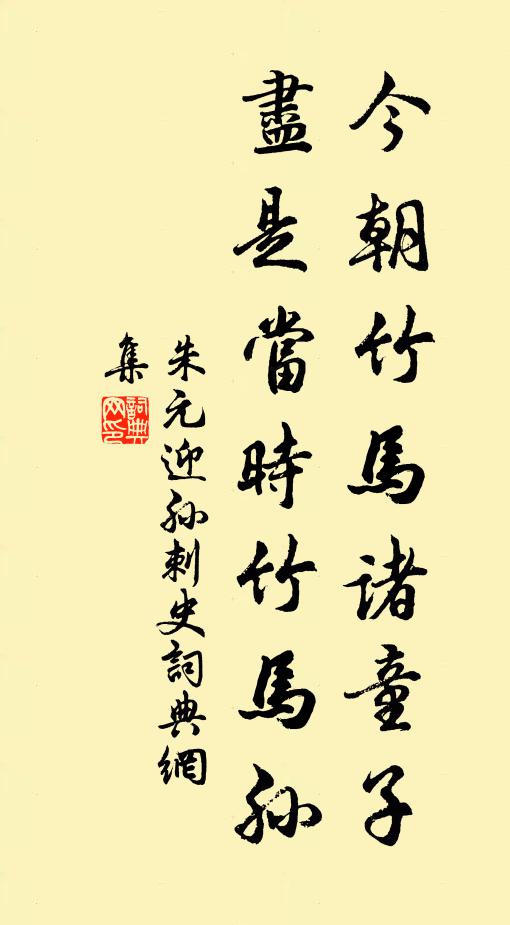 今朝竹馬諸童子
盡是當時竹馬孫
朱元迎孫刺史詞典網
集
詞典網印